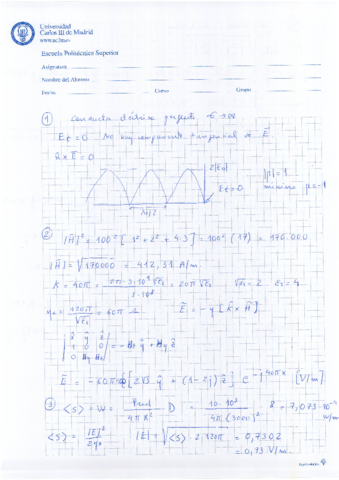 Universidad
Carlos III de Madrid
www.uc3m.es
Escuela Politécnica Superior
Asignatura
Nombre del Alumno
Fecha Curso Grupo
① conductor eléctrico perfecto
Et = 0 No hay componente tangencial de E̅
n̂ x E̅ = 0
2|E0|
Et=0
λ/2
|ρ| = 1
mínimo ρ = -1
② |H̅|² = 100² [ 2² + 2² + 4·3 ] = 100² (17) = 170.000
|H̅| = √170000 = 412,31 A/m
K = 40π = = 20π √εr √εr = 2 εr = 4
η = 120π/√εr = 60π Ω E̅ = -η [ k̂ x H̅ ]
x̂ ŷ ẑ
1 0 0
0 Hy Hz
= - Hz ŷ + Hy ẑ
E̅ = - 60π [ 2√3 ŷ + (1-2j) ẑ ] e^-j40πx [V/m]
③ <S> = W = Prad / 4πR² D = 10·10³ / 4π(3000)²
<S> = |E|² / 2η0 |E| = √<S>·2·120π = 0,7302
= 0,73 V/m